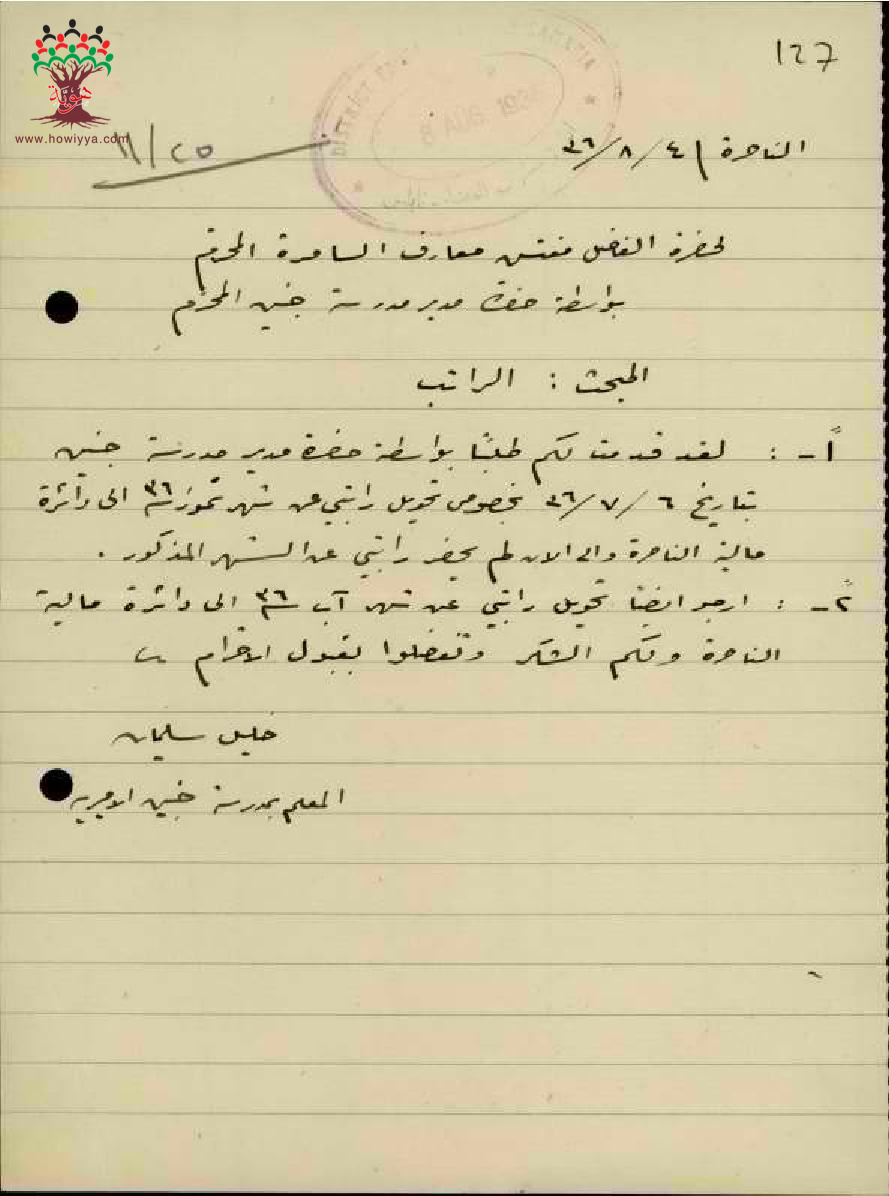 127
هويّة
www.howiyya.com
DISTRICT SAMARIA
8 AUG 1936
١١/٢٥
الناصرة ٤ / ٨ / ٣٦
لحضرة الفاضل مفتش معارف السامرة المحترم
بواسطة حضرة مدير مدرسة جنين المحترم
المبحث : الراتب
١ً- : لقد قدمت لكم طلبًا بواسطة حضرة مدير مدرسة جنين
بتاريخ ٦ / ٧ / ٣٦ بخصوص تحويل راتبي عن شهر تموز سنة ٣٦ الى دائرة
مالية الناصرة والى الان لم يحضر راتبي عن الشهر المذكور .
٢ً- : ارجو ايضًا تحويل راتبي عن شهر آب سنة ٣٦ الى دائرة مالية
الناصرة ولكم الشكر وتفضلوا بقبول الاحترام
خليل سليمان
المعلم بمدرسة جنين الاميرية